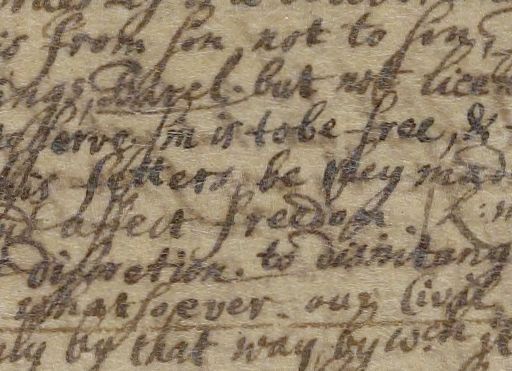 is from sin, not to sin,
ings, Purel. but not licen
serve sin is to be free, &
his fetters, be they mad
affect freedom. R: m
Discretion. to disintang
whatsoever. our Civil
ly by that way, by wch